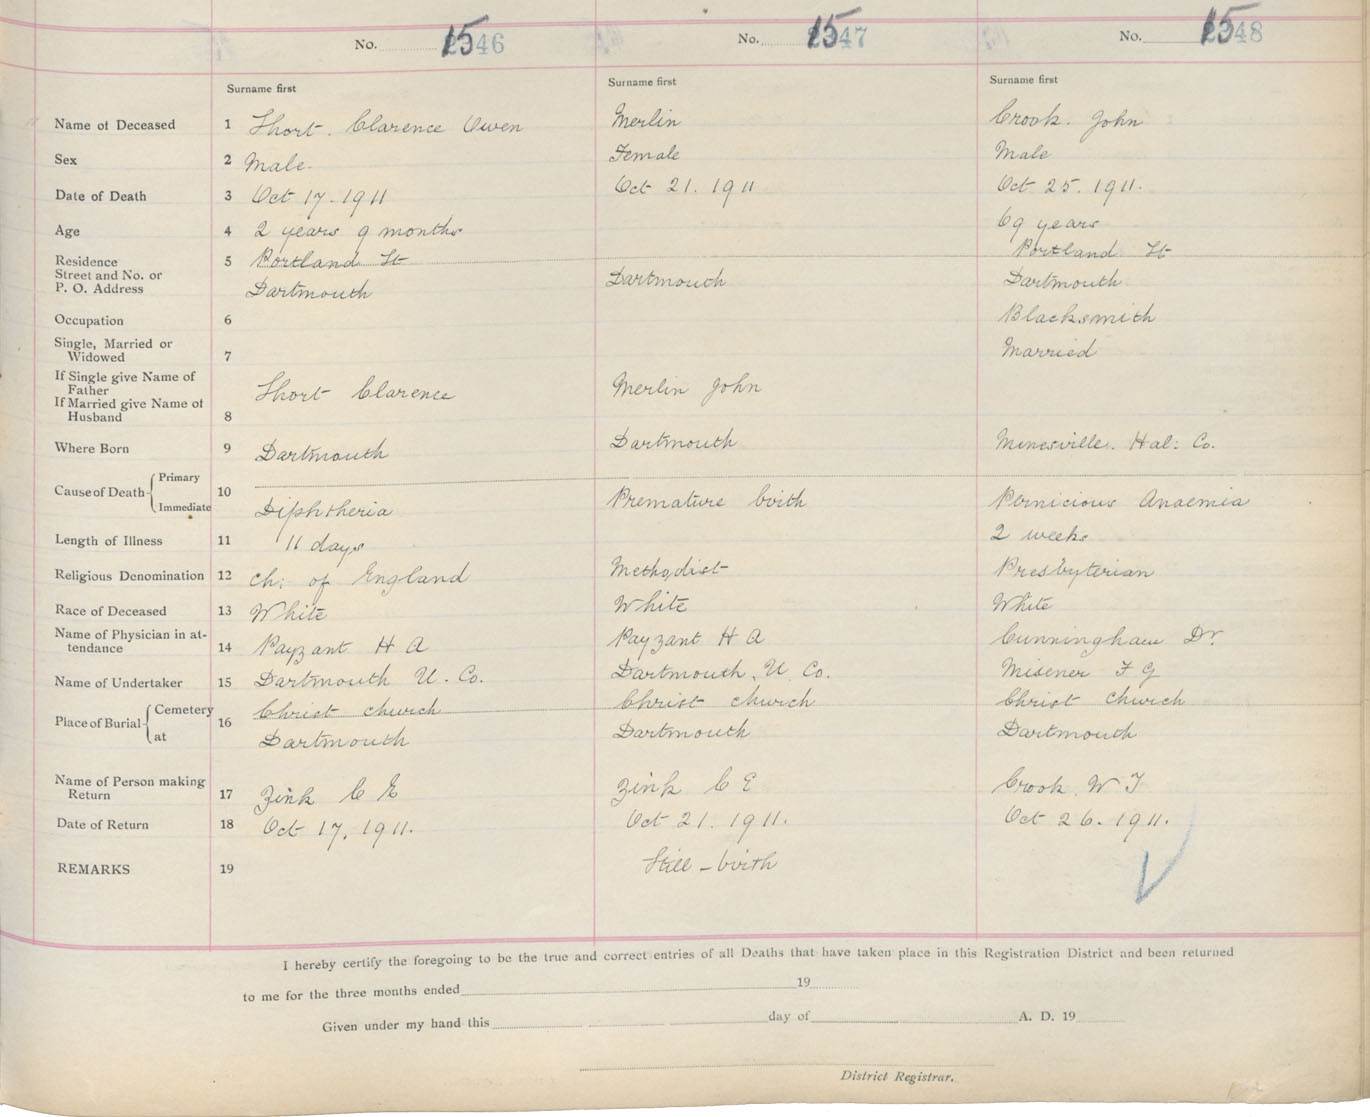 No. 1546 No. 1547 No. 1548
Surname first Surname first Surname first
Name of Deceased 1 Short. Clarence Owen Merlin Crook. John
Sex 2 Male. Female Male
Date of Death 3 Oct 17. 1911 Oct 21. 1911 Oct 25. 1911.
Age 4 2 years 9 months 69 years
Residence 5 Portland St Portland St
Street and No. or
P. O. Address Dartmouth Dartmouth Dartmouth
Occupation 6 Blacksmith
Single, Married or
Widowed 7 Married
If Single give Name of
Father
If Married give Name of
Husband 8 Short Clarence Merlin John
Where Born 9 Dartmouth Dartmouth Minesville. Hal. Co.
Cause of Death Primary
10
Immediate Diphtheria Premature birth Pernicious Anaemia
Length of Illness 11 11 days 2 weeks
Religious Denomination 12 Ch: of England Methodist Presbyterian
Race of Deceased 13 White White White
Name of Physician in at-
tendance 14 Payzant H A Payzant H A Cunningham Dr.
Name of Undertaker 15 Dartmouth U. Co. Dartmouth, U. Co. Misener F G
Place of Burial Cemetery 16 Christ church Christ church Christ church
at Dartmouth Dartmouth Dartmouth
Name of Person making
Return 17 Zink C E Zink C E Crook. W T
Date of Return 18 Oct 17, 1911. Oct 21. 1911. Oct 26. 1911.
REMARKS 19 Still-birth
I hereby certify the foregoing to be the true and correct entries of all Deaths that have taken place in this Registration District and been returned
to me for the three months ended 19
Given under my hand this day of A. D. 19
District Registrar.